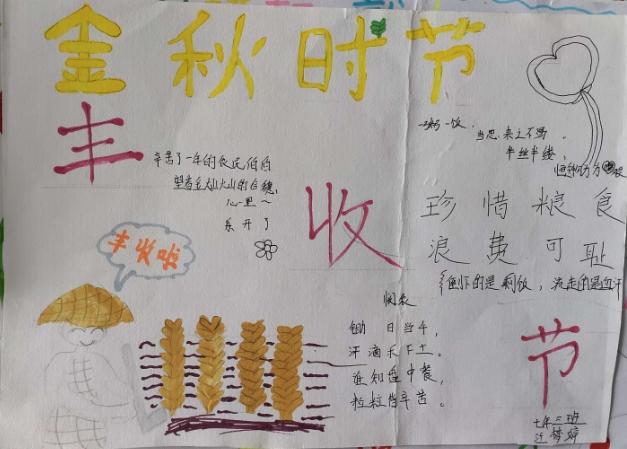 金秋时节
丰
收
节
辛苦了一年的农民伯伯
望着金灿灿的谷穗,
心里~
乐开了
丰收啦
一粥一饭
当思来之不易。
半丝半缕,
珍惜粮食
浪费可耻
倒下的是剩饭,流走的是血汗
悯农
锄日当午,
汗滴禾下土。
谁知盘中餐,
粒粒皆辛苦。
七年三班